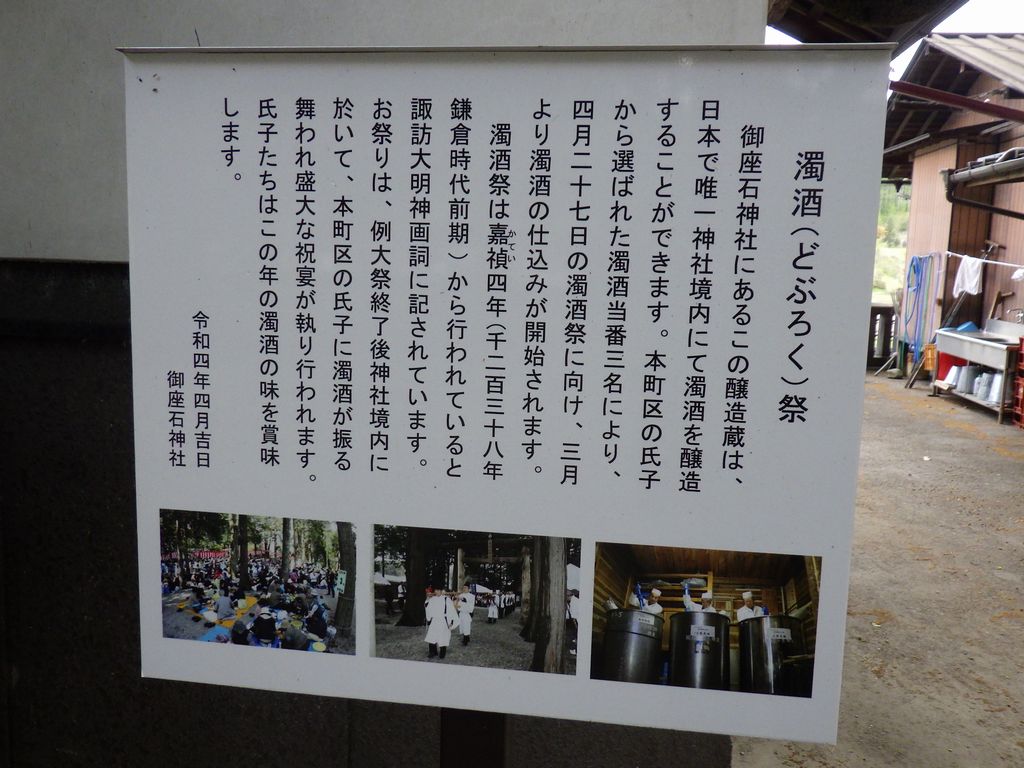 濁酒（どぶろく）祭
御座石神社にあるこの醸造蔵は、
日本で唯一神社境内にて濁酒を醸造
することができます。本町区の氏子
から選ばれた濁酒当番三名により、
四月二十七日の濁酒祭に向け、三月
より濁酒の仕込みが開始されます。
濁酒祭は嘉禎四年（千二百三十八年
かてい
鎌倉時代前期）から行われていると
諏訪大明神画詞に記されています。
お祭りは、例大祭終了後神社境内に
於いて、本町区の氏子に濁酒が振る
舞われ盛大な祝宴が執り行われます。
氏子たちはこの年の濁酒の味を賞味
します。
令和四年四月吉日
御座石神社